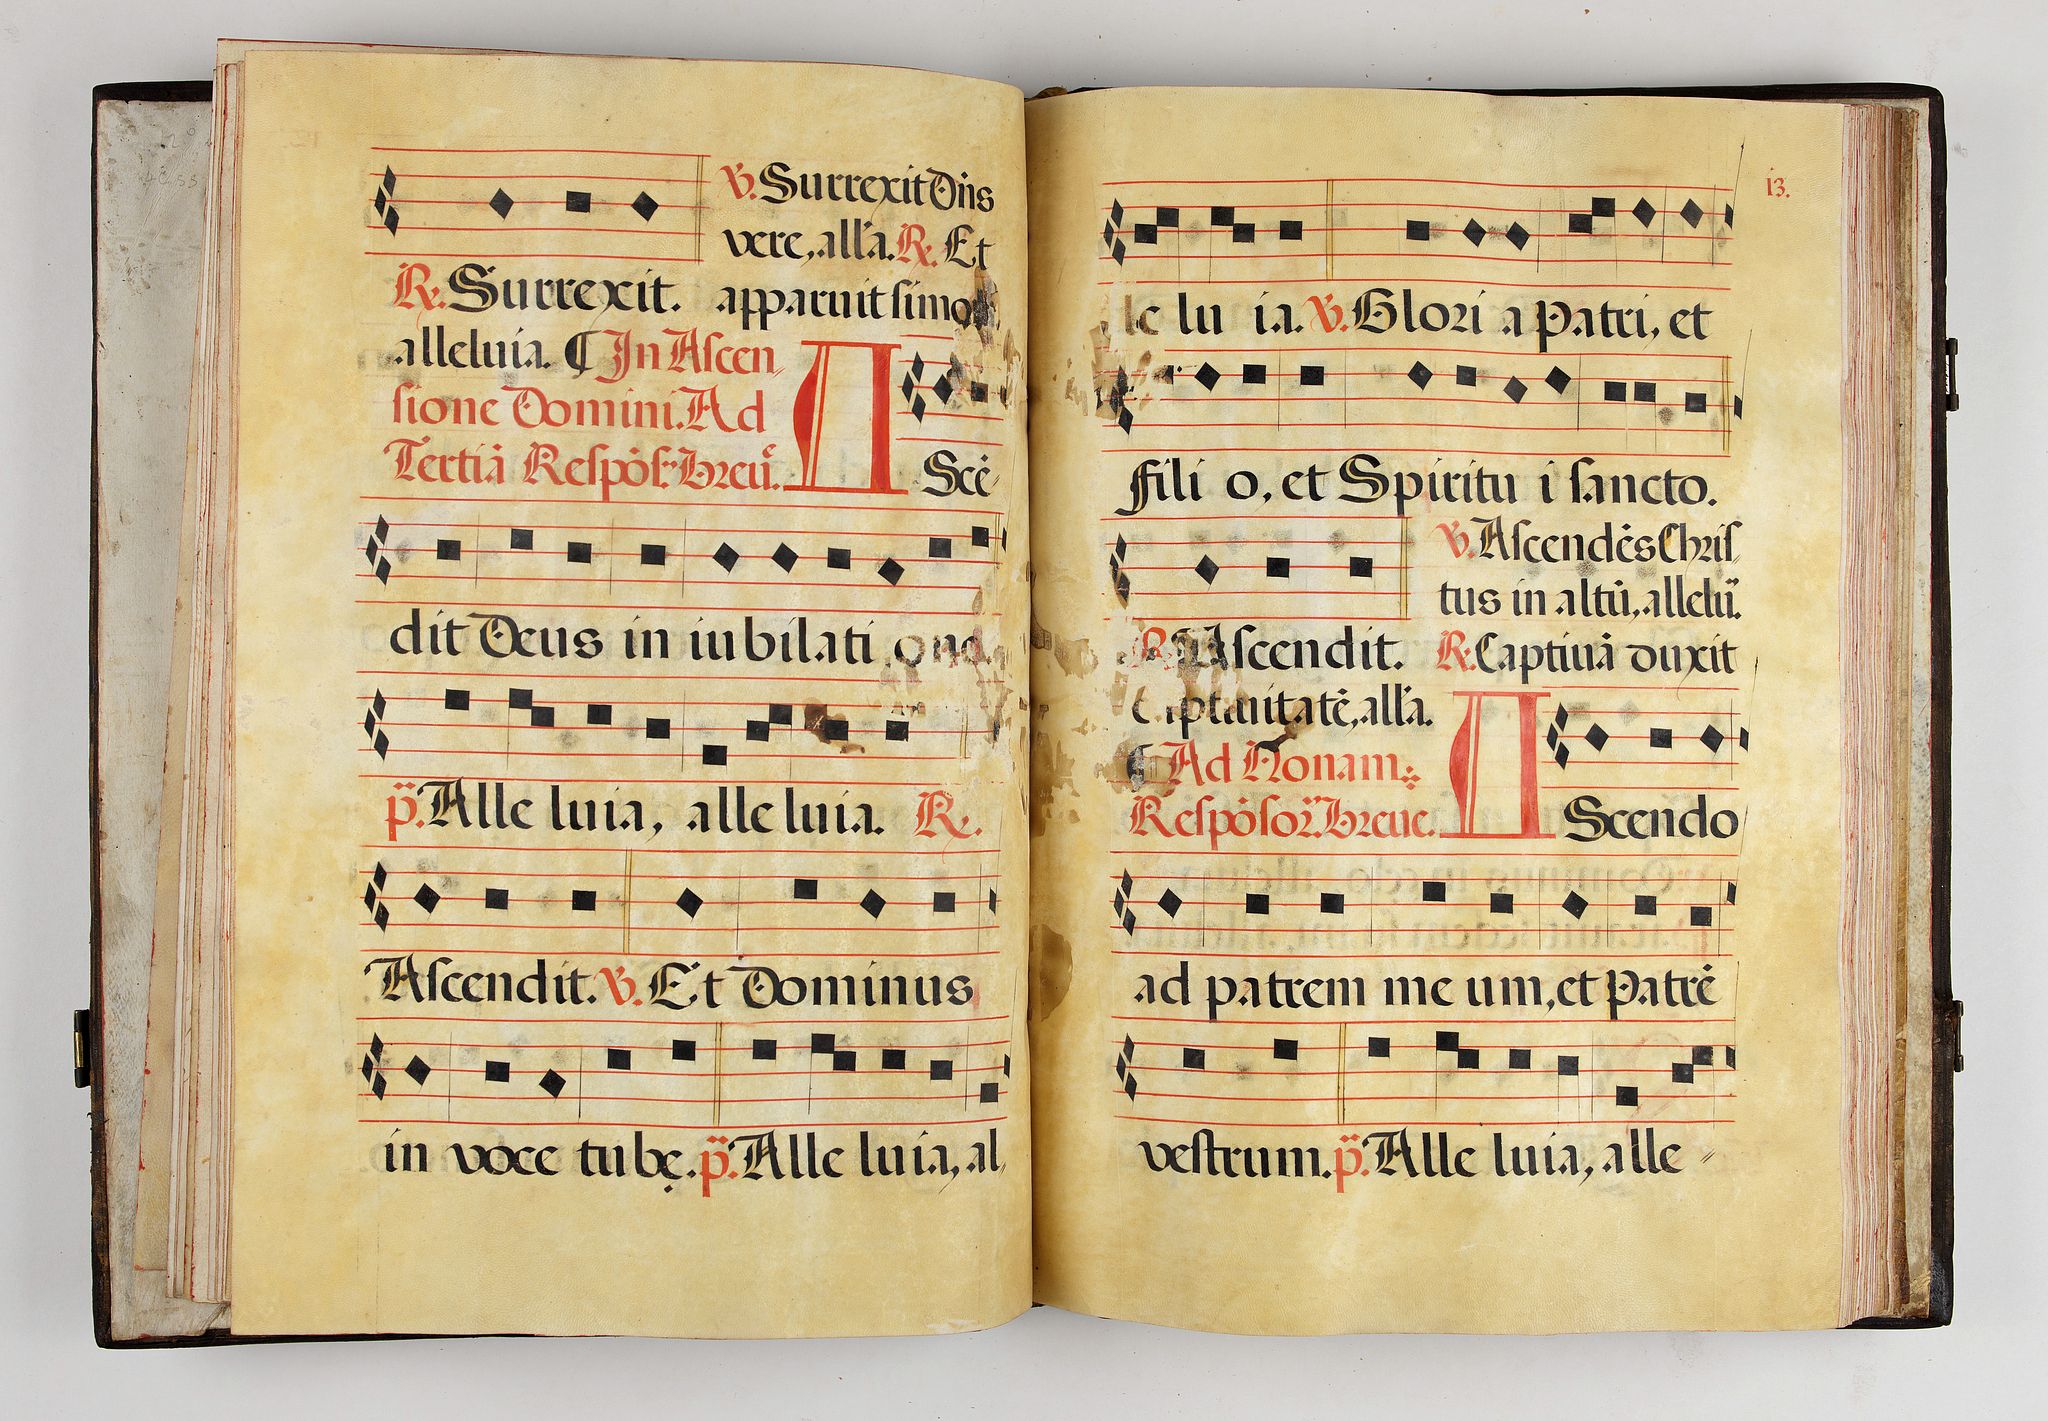 ℣. Surrexit Dn̄s
vere, alľa. ℟. Et
℟. Surrexit. apparuit simo
alleluia. ¶ In Ascen,
sione Domini. Ad
Tertiā Respōs. breuᵉ. A
Scē-
dit Deus in iubilati o ne.
p̈. Alle luia, alle luia. ℟.
Ascendit. ℣. Et Dominus
in voce tubę. p̈. Alle luia, al,
13.
le lu ia. ℣. Glori a Patri, et
fili o, et Spiritu i sancto.
℣. Ascendēs Chris-
tus in altū, allelū.
℟. Ascendit. ℟. Captiuā duxit
captiuitatē, alľa.
¶ Ad Nonam
Respōsor. breue. A Scendo
ad patrem me um, et Patrē
vestrum. p̈. Alle luia, alle -